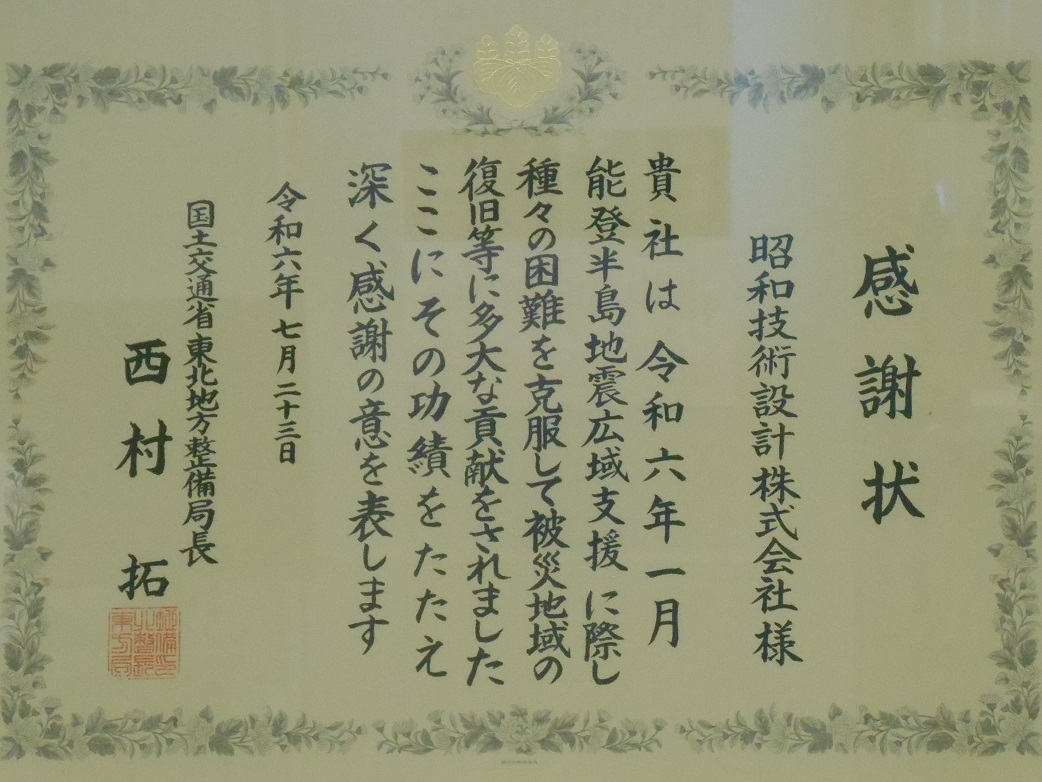 感謝状
昭和技術設計株式会社様
貴社は令和六年一月
能登半島地震広域支援に際し
種々の困難を克服して被災地域の
復旧等に多大な貢献をされました
ここにその功績をたたえ
深く感謝の意を表します
令和六年七月二十三日
国土交通省東北地方整備局長
西村拓